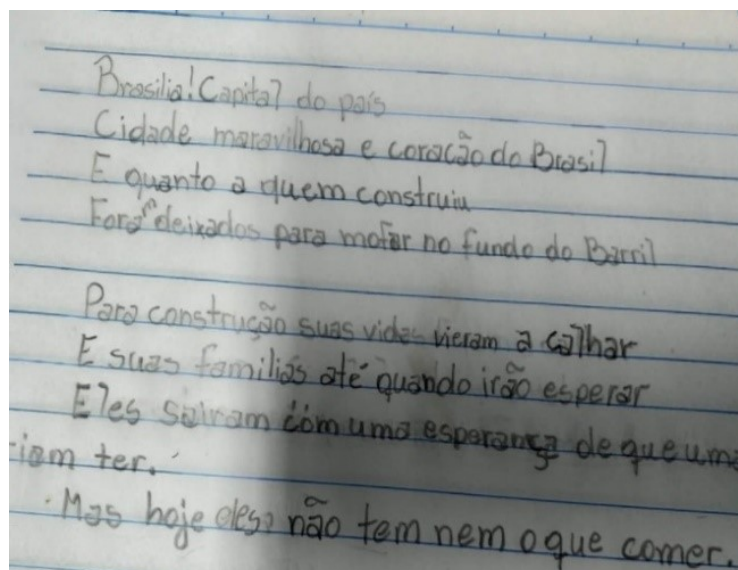 Brasilia! Capital do país
Cidade maravilhosa e coração do Brasil
E quanto a quem construiu
Foram deixados para mofar no fundo do Barril
Para construção suas vidas vieram a calhar
E suas familias até quando irão esperar
Eles sairam com uma esperança de que uma
iam ter.
Mas hoje eles não tem nem o que comer.